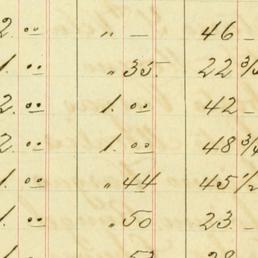 2. 00 " — 46 —
1. 00 " 35. 22 3/4
2. 00 1. 00 42 —
2. 00 1. 00 48 3/4
1. 00 " 44 45 1/2
1. 00 " 50 23 —